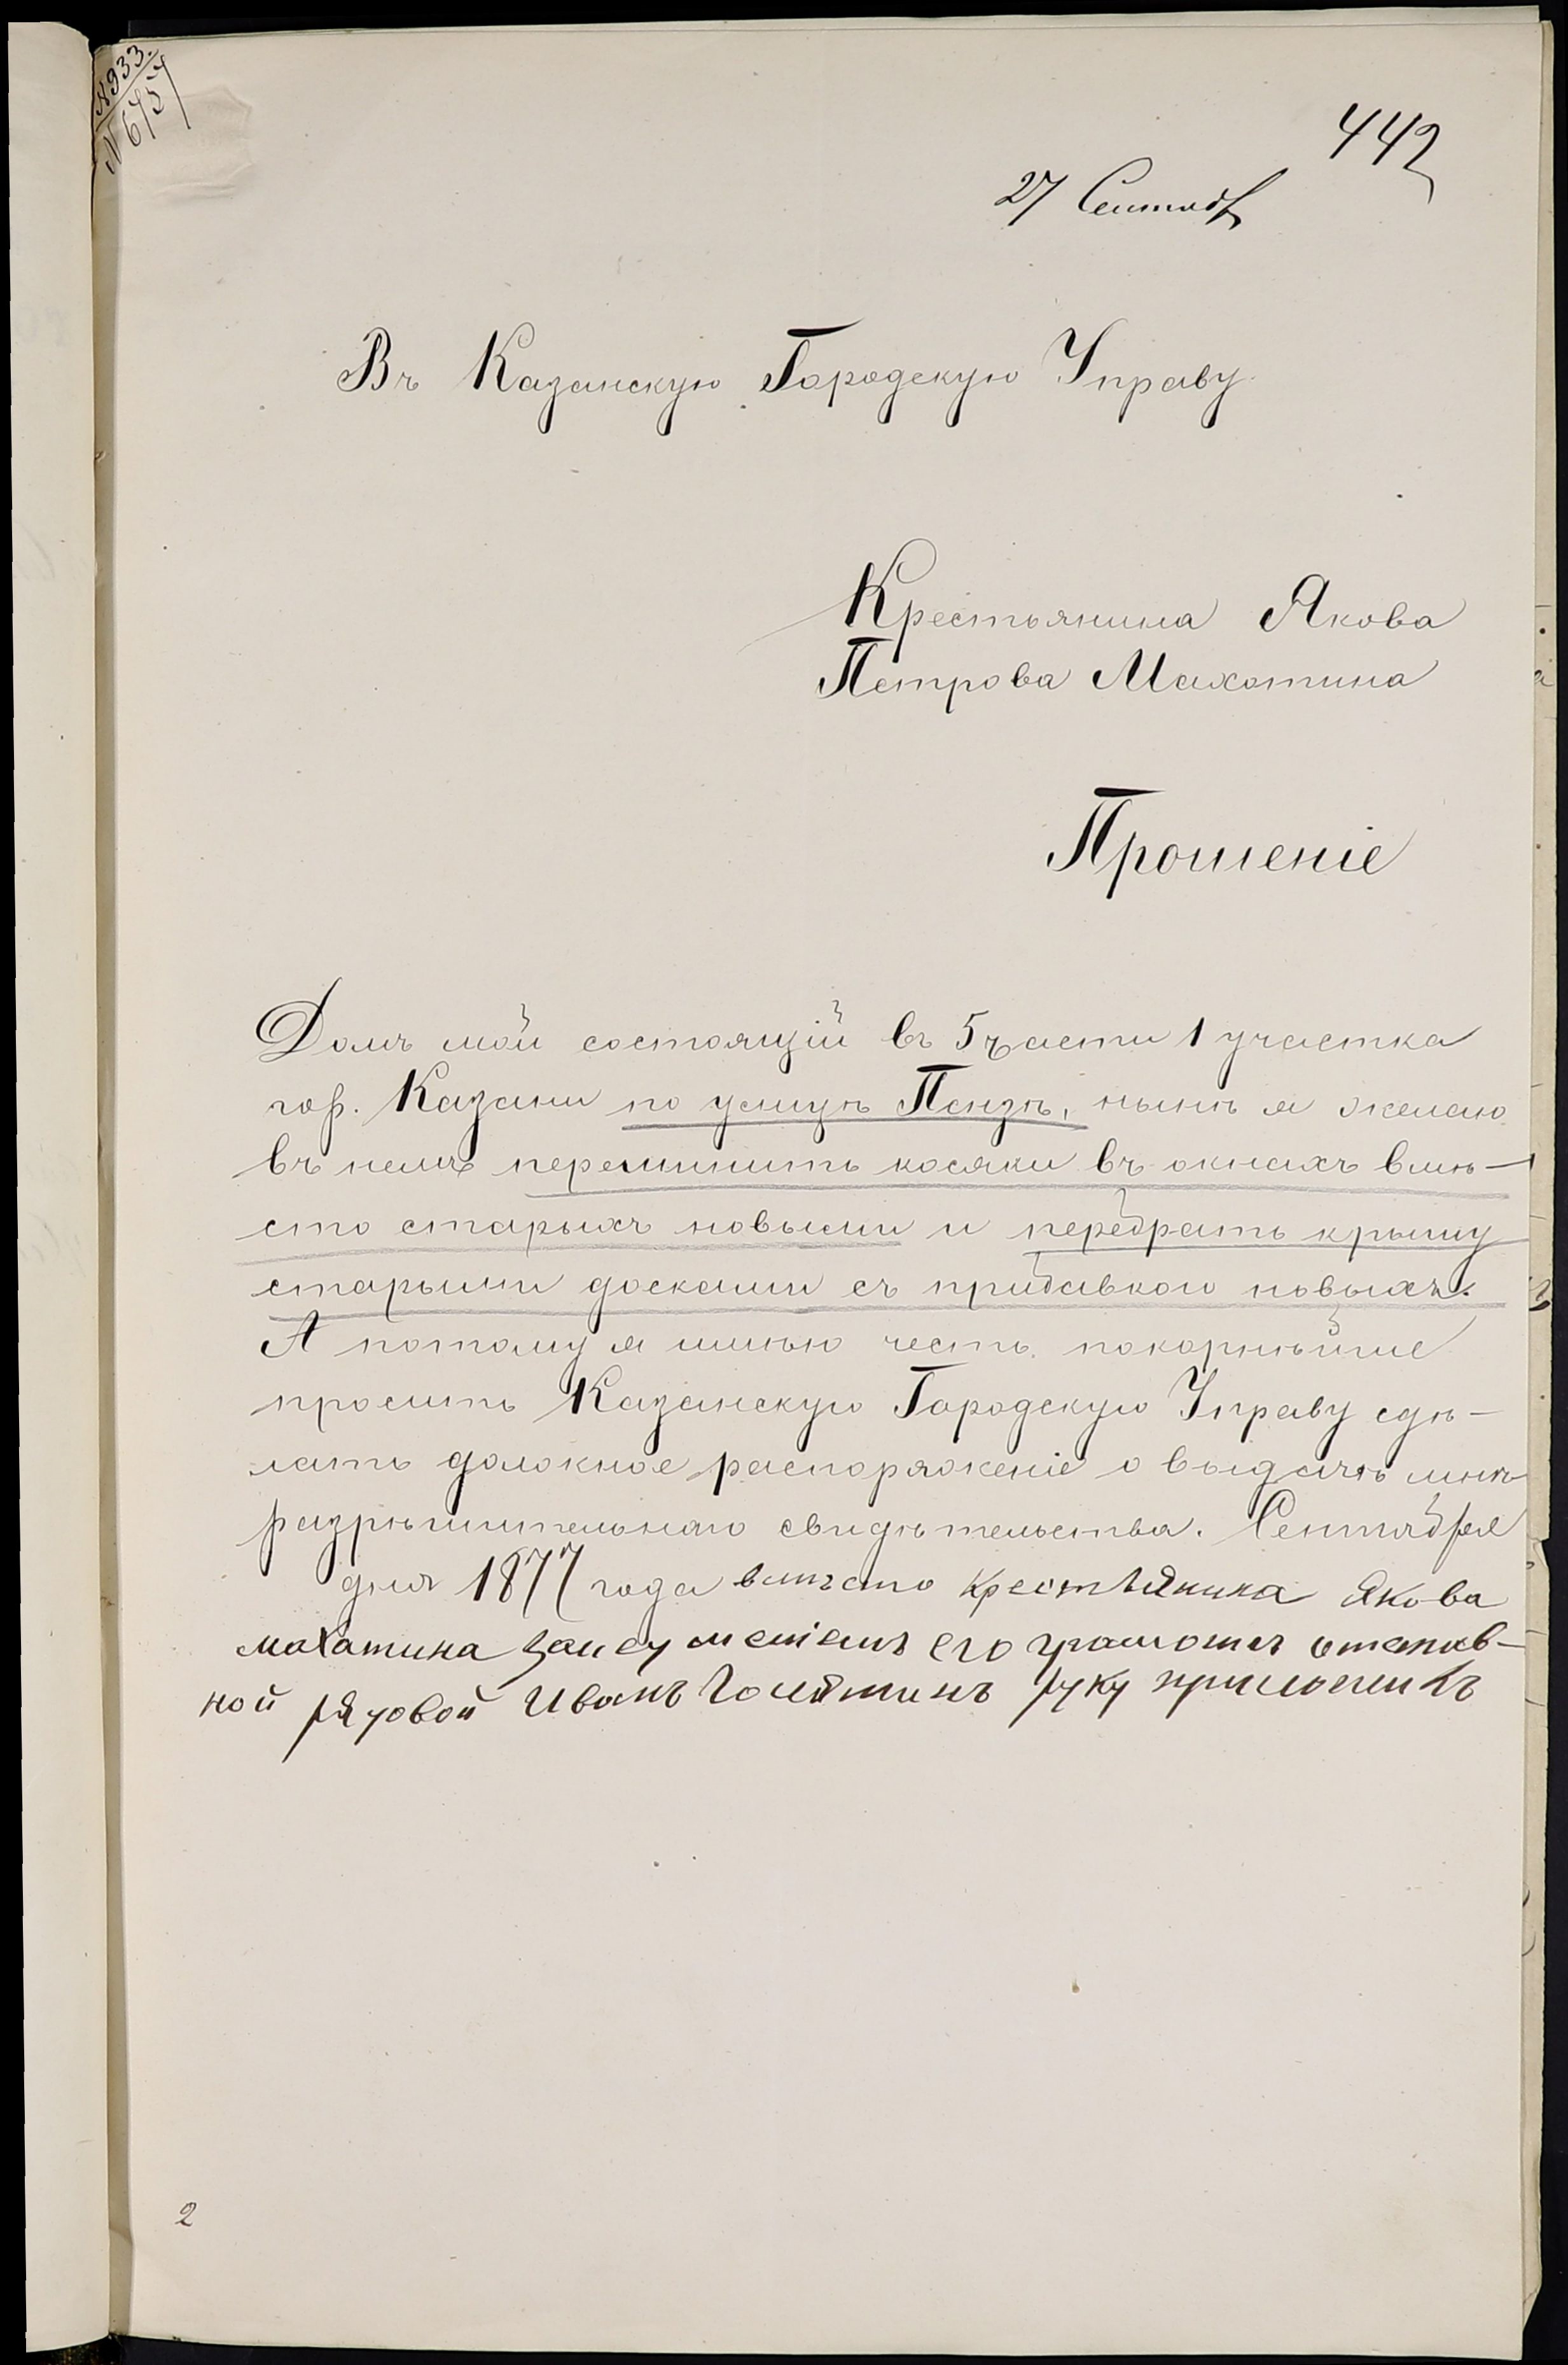 №933.
№6757
442
27 Сентяб
Въ Казанскую Городскую Управу
Крестьянина Якова
Петрова Махотина
Прошеніе
Домъ мой состоящій въ 5 части 1 участка
гор. Казани по улицѣ Пензѣ, нынѣ я желаю
въ немъ переминить косяки въ окнахъ вмѣ-
сто старыхъ новыми и перебрать крышу
старыми досками съ прибавкою новыхъ.
А потому я имѣю честь покорнѣйше
просить Казанскую Городскую Управу сдѣ-
лать должное распоряженіе о выдачѣ мнѣ
разрѣшительнаго свидѣтельства. Сентября
дня 1877 года вмѣсто крестьянина Якова
махатина его отстав-
ной рядовой Иванъ руку приложилъ
2